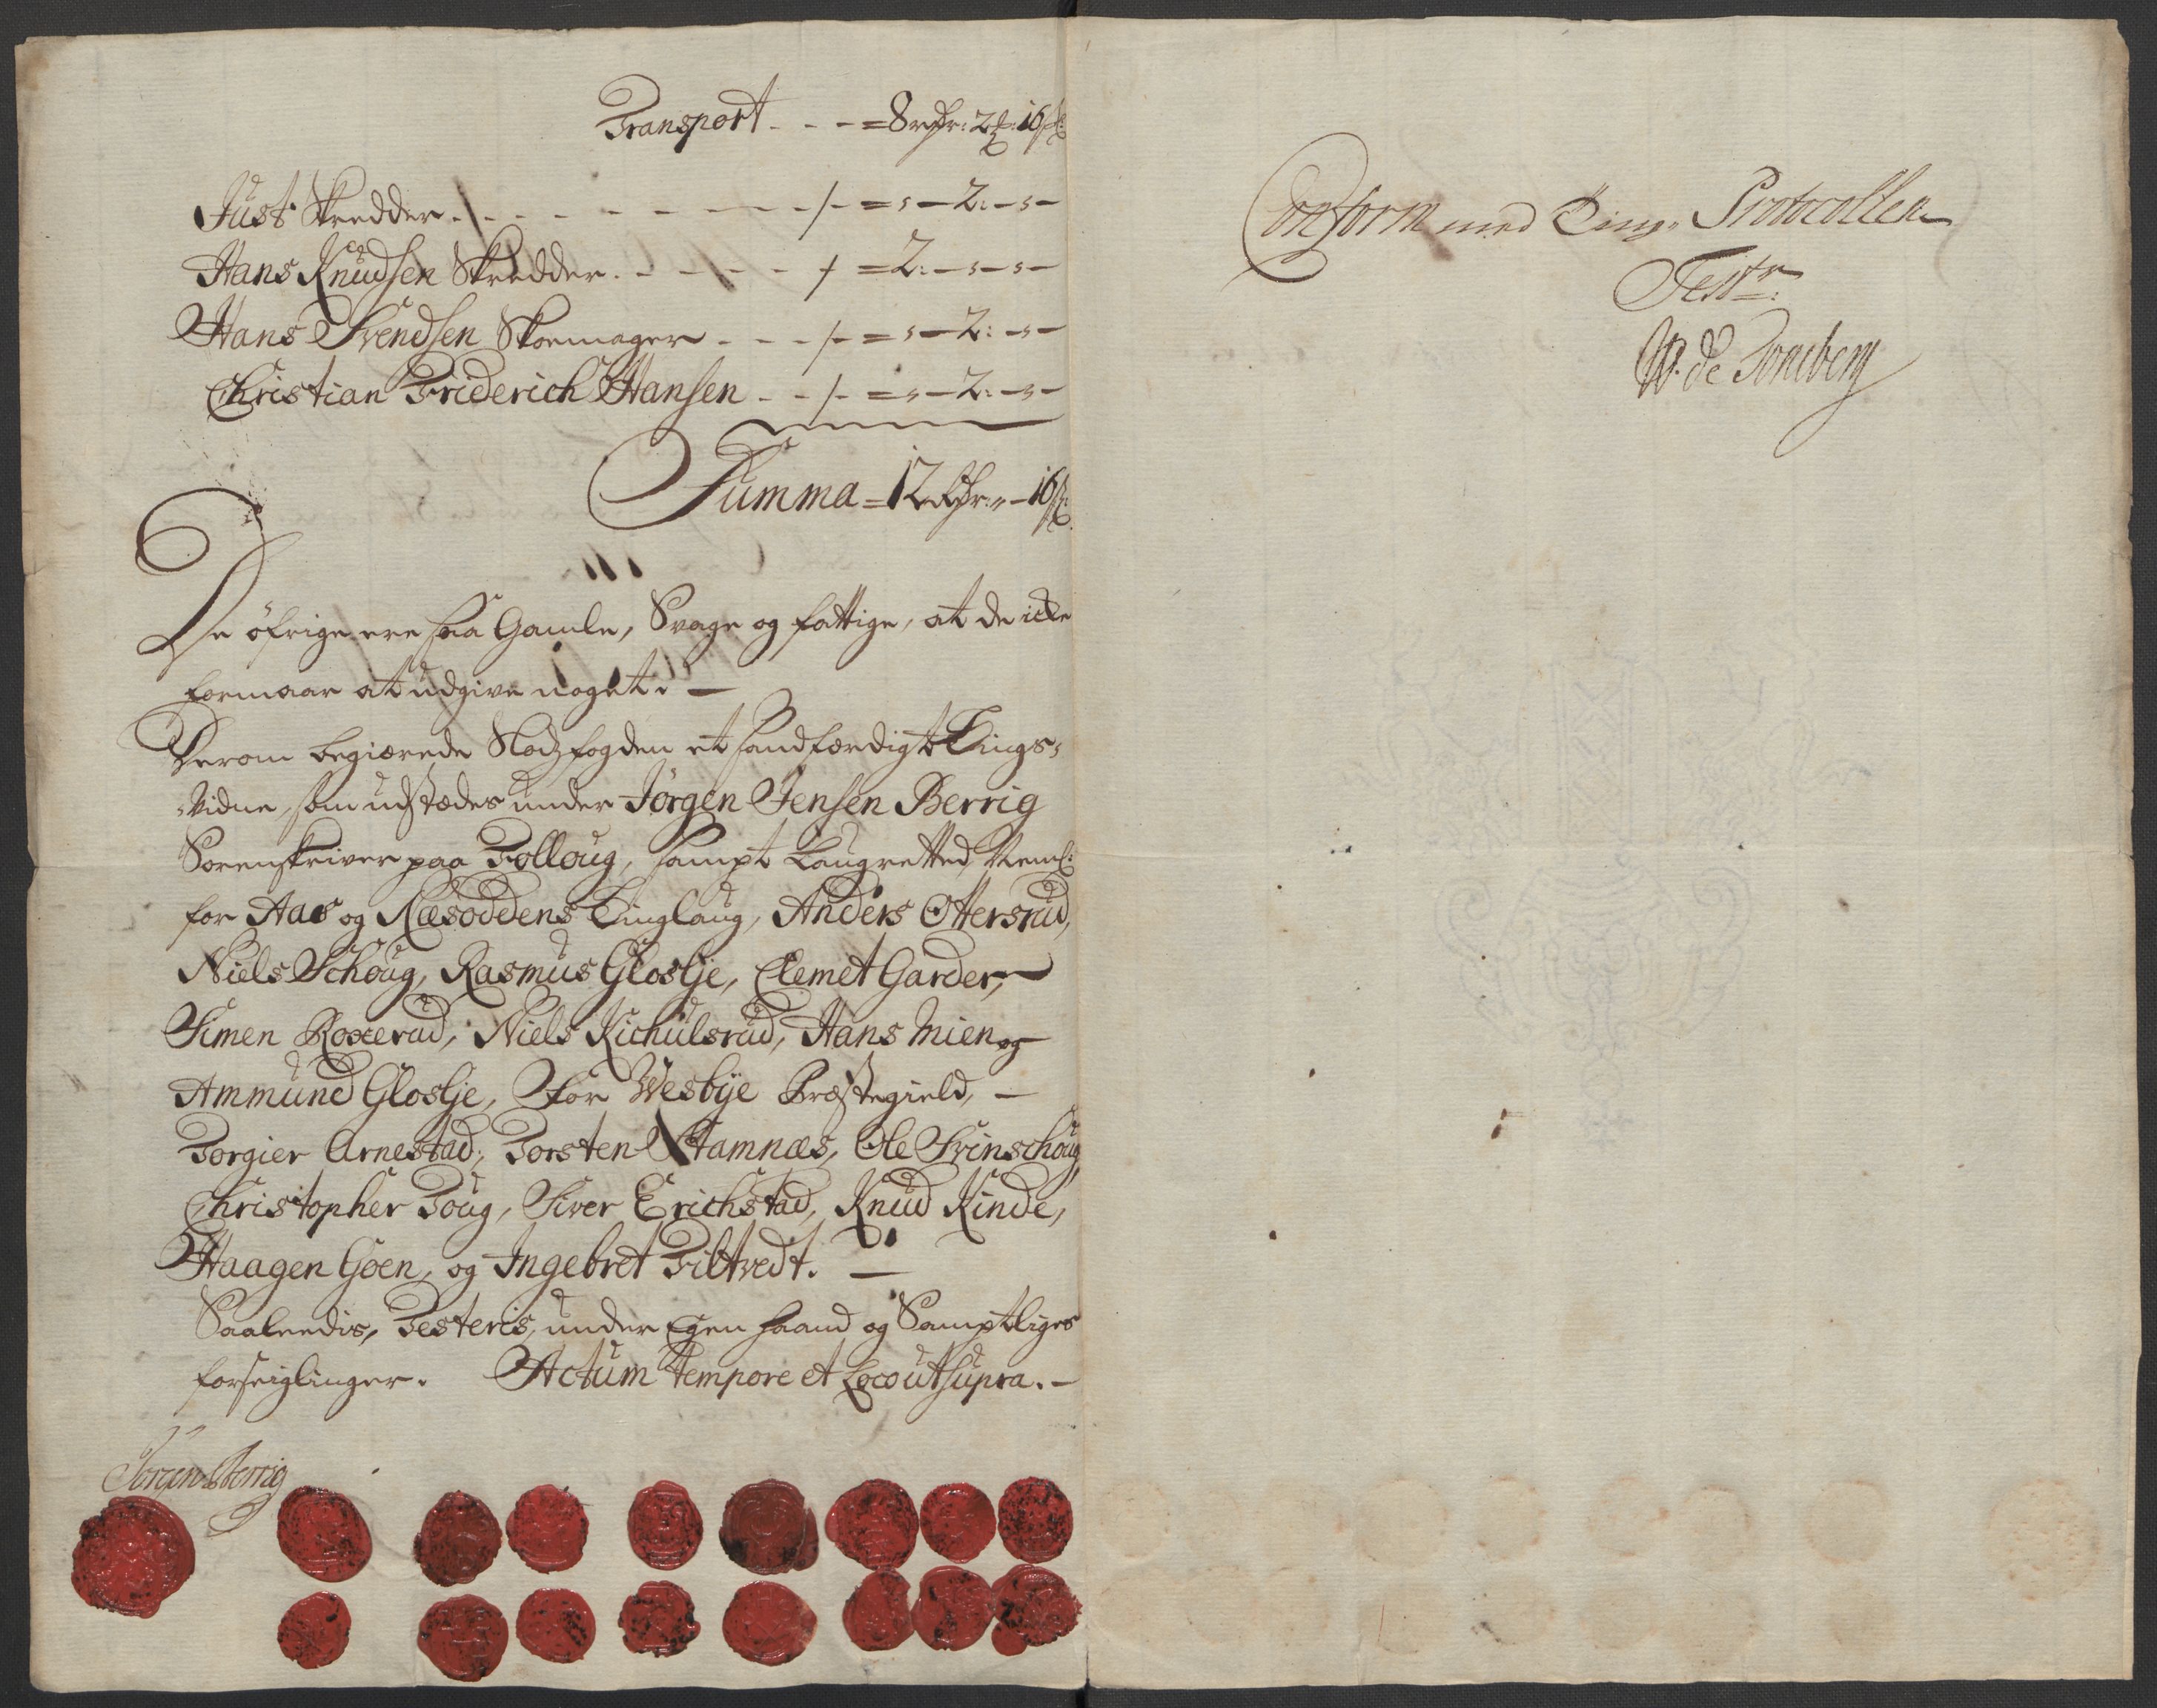 Transport - - - = 8 rdr: 2 ℔: 16 s:
Just Skredder - - - - - - - - - /- = s - 2: - s -
Hans Knudsen Skredder. - - - - - /- = 2: - s - s -
Hans Svendsen Skoemager - - - /- = s - 2: - s -
Christian Friderich Hansen - - /- = s - 2: - s -
Summa = 12 Rdr: „ - 16 s:
De öfrige ere saa Gamle, Svage og fattige, at de icke
formaar at udgive noget. —
Derom begiærede Fogden et sandfærdigt Tings-
Vidne, som udstædes under Jörgen Jensen Berrig
Sorenskriver paa Folloug, sampt Laugretted Neml:
for Aas og Næsoddens Tinglaug, Anders Ottersrud,
Niels Schoug, Rasmus Gloslje, Clemet Garder,
Simen Roxerud, Niels Kichulsrud, Hans Mien og
Ammund Gloslje, For Wesbye Præstegield, —
Torgier Arnestad, Torsten Stamnæs, Ole Svinschoug
Christopher Toug, Siver Erichstad, Knud Kinde,
Haagen Gøen, og Ingebret Tiltvedt. —
Saaleedis, Testeris, under Egen haand og Samptliges
forseiglinger. Actum tempore et Loco ut supra. —
Jörgen Berrig
Conform med Ting Protocollen
Testr:
W. de Tonsberg